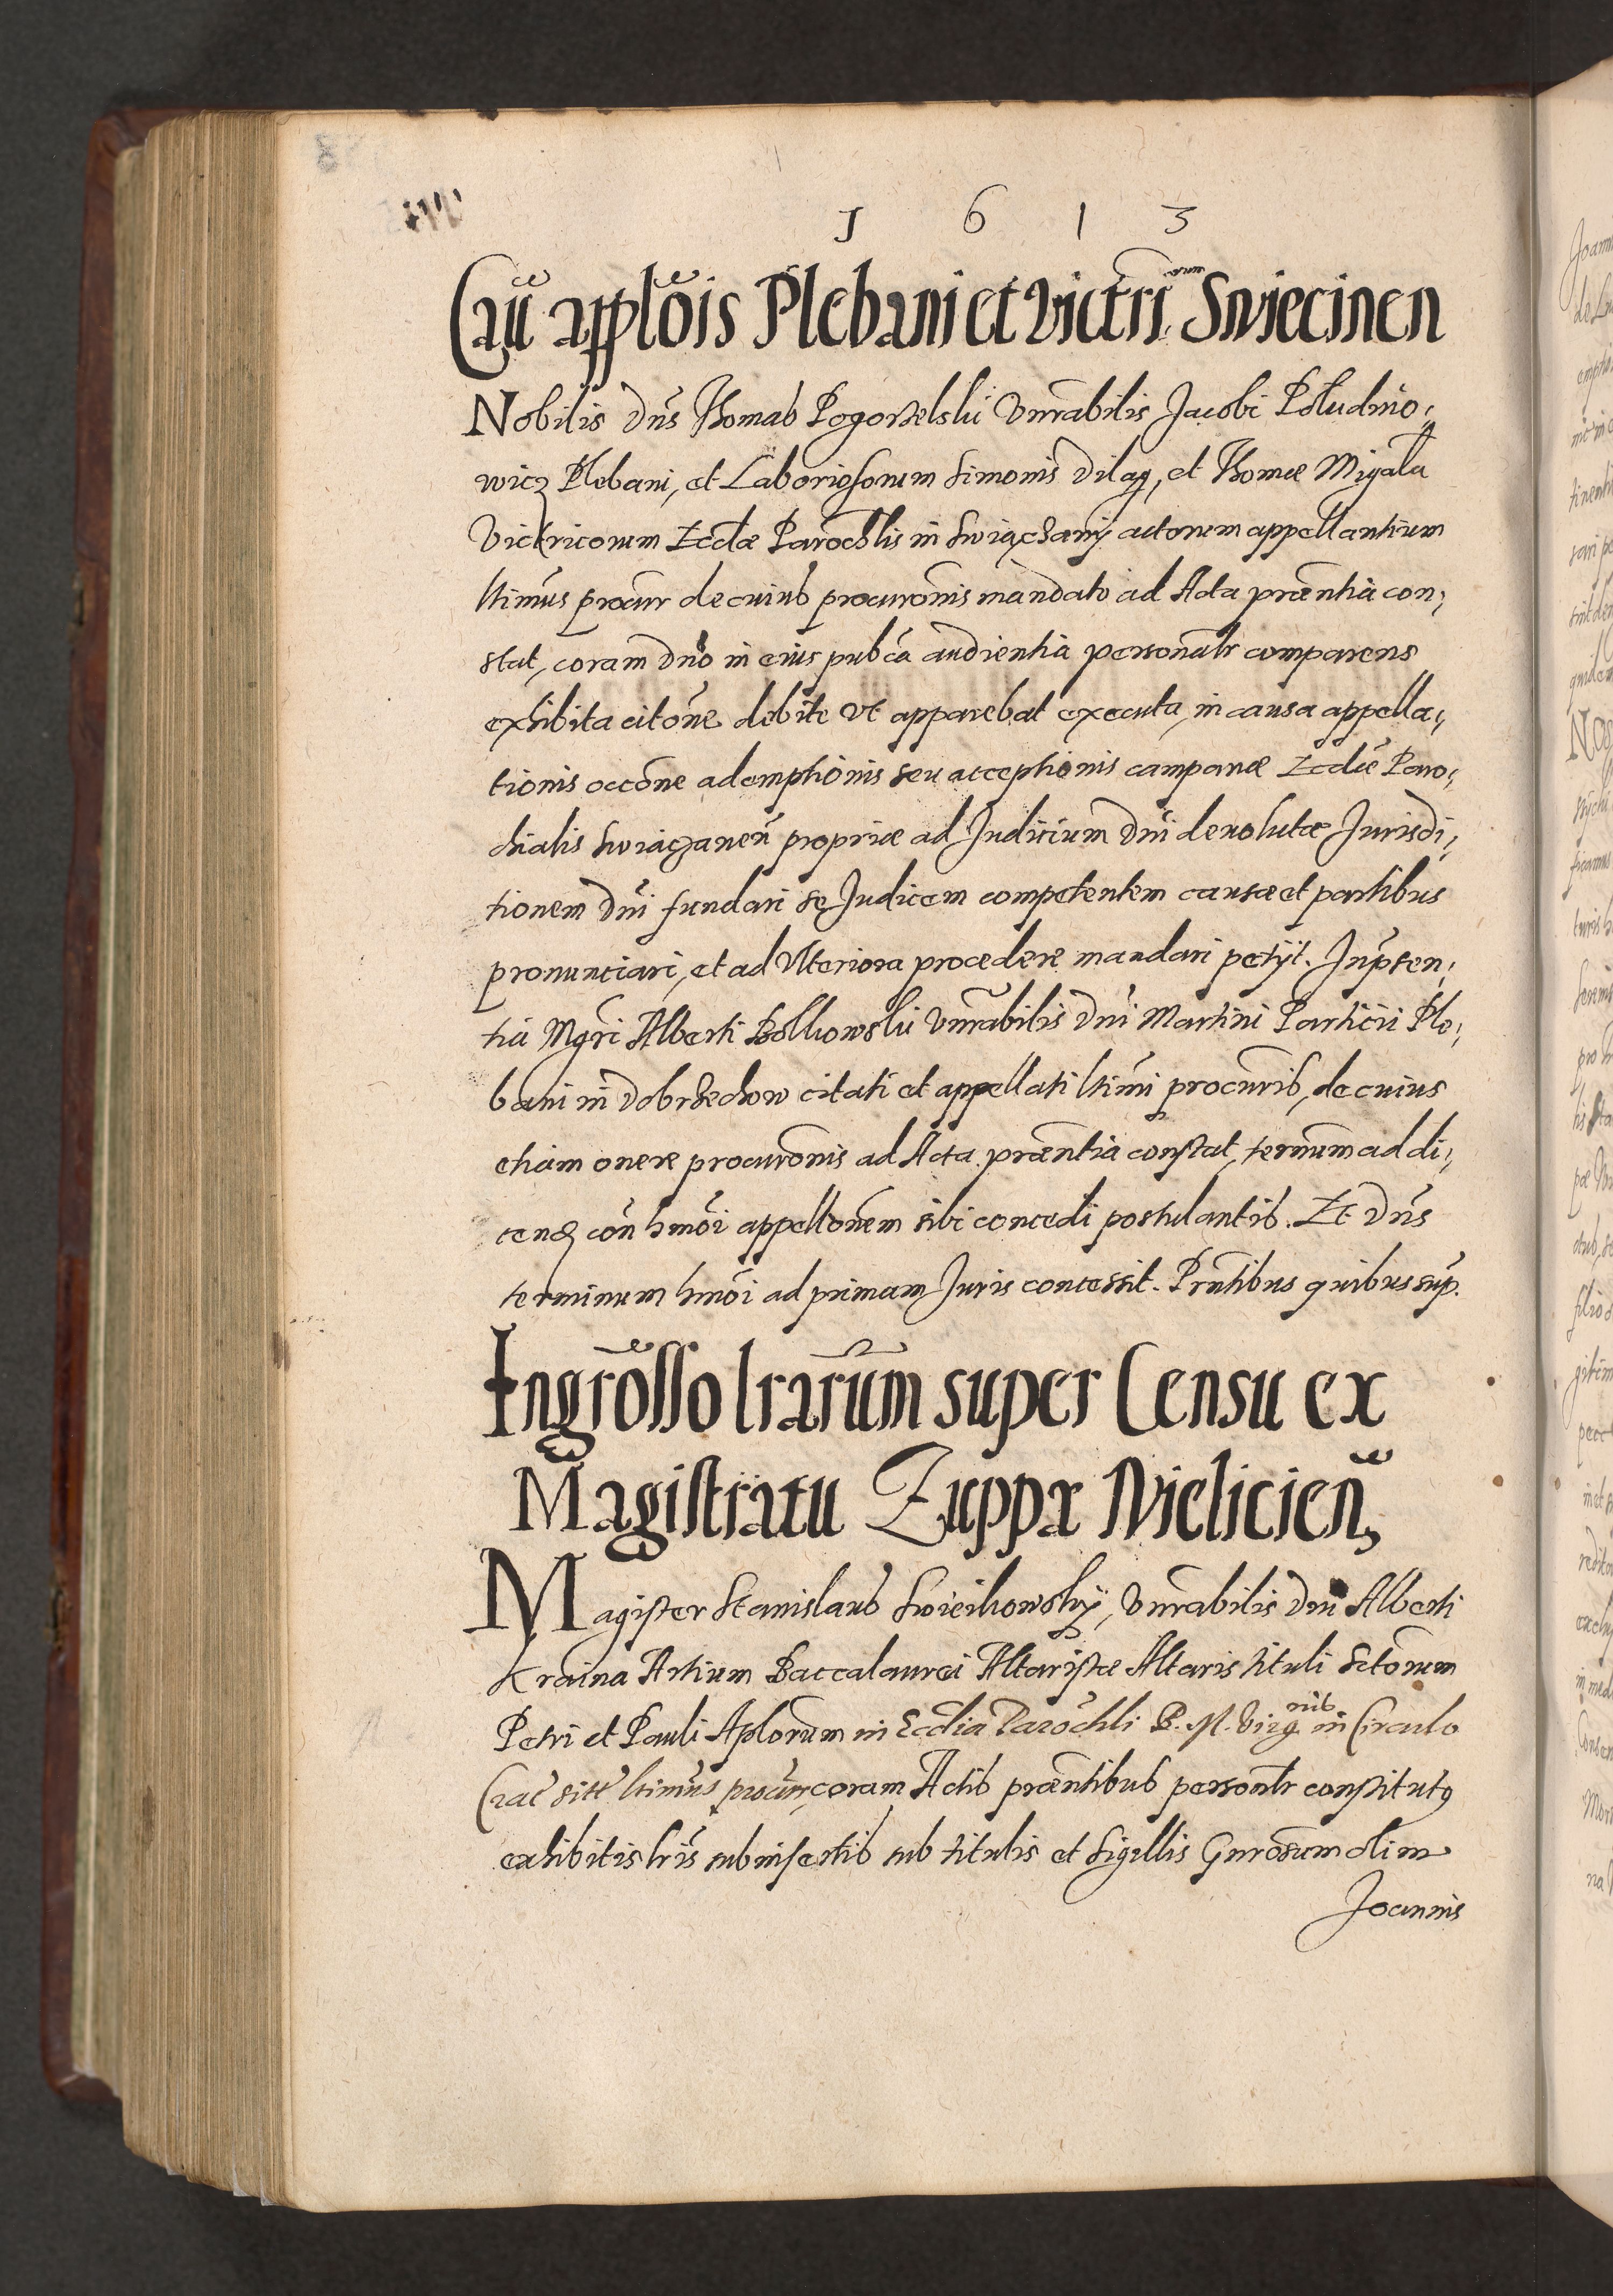 1 6 1 3
Cau͠ applõis Plebani et Victri͠orum Swiecinen
Nobilis Dn͠s Thomas Pogorzelski Vnr͠abilis Jacobi Poludnio⸗
wicz Plebani, et Laboriosorum Simonis Dilag, et Thomæ Migala
Victricorum Eccl͠æ Paroch͠lis in Swiączany actorum appellantium
ltimus procur de cuius procur͠onis mandato ad Acta præntia con⸗
stat, coram Dn͠o in eius pub͠ca audientia personal͠r comparens
exhibita citõne debite vt apparebat executa, in causa appella⸗
tionis occõne ademptionis seu acceptionis campanæ Eccl͠æ Paro⸗
chialis Swiączanen͠ propriæ ad Judicium Dn͠i deuolutæ Jurisdi⸗
tionem Dn͠i fundari se Judicem competentem causæ et partibus
pronunciari, et ad vlteriora procedere mandari petijt. In p͠nsen⸗
tia Mg͠ri Alberti Borkowski Vnr͠abilis Dn͠i Martini Particii Ple⸗
bani in Dobrzechow citati et appellati ltimi procuris, de cuius
etiam onere procur͠onis ad Acta præntia constat, terminum ad di⸗
cend con͠ hmõi appell͠onem sibi concedi postulantis. Et Dn͠s
terminum hmõi ad primam Juris concessit. Pr͠ntibus quibus sup͠.
Ingrõsso lrar͠um super Censu ex
Magistratu Zuppæ Wielicien͠
Magister Stanislaus Swieikowsky, Vnr͠abilis Dn͠i Alberti
Kraina Artium Baccalaurei Altaristæ Altaris tituli Sctorum
Petri et Pauli Aplorum in Eccl͠ia Paroch͠li B. M. Virgnis in Circulo
Crac͠ sitæ ltimus procur, coram Actis præntibus personl͠r constitutus
exhibitis lr͠is subinsertis sub titulis et sigillis Gnr͠osum olim
Joannis